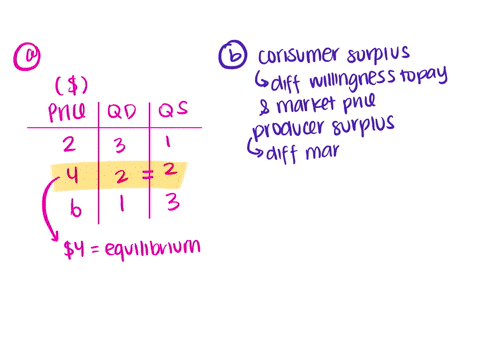 a
($)
Price QD QS
2 3 1
4 2 = 2
6 1 3
$4 = equilibrium
b consumer surplus
↳ diff willingness to pay
& market price
producer surplus
↳ diff mar